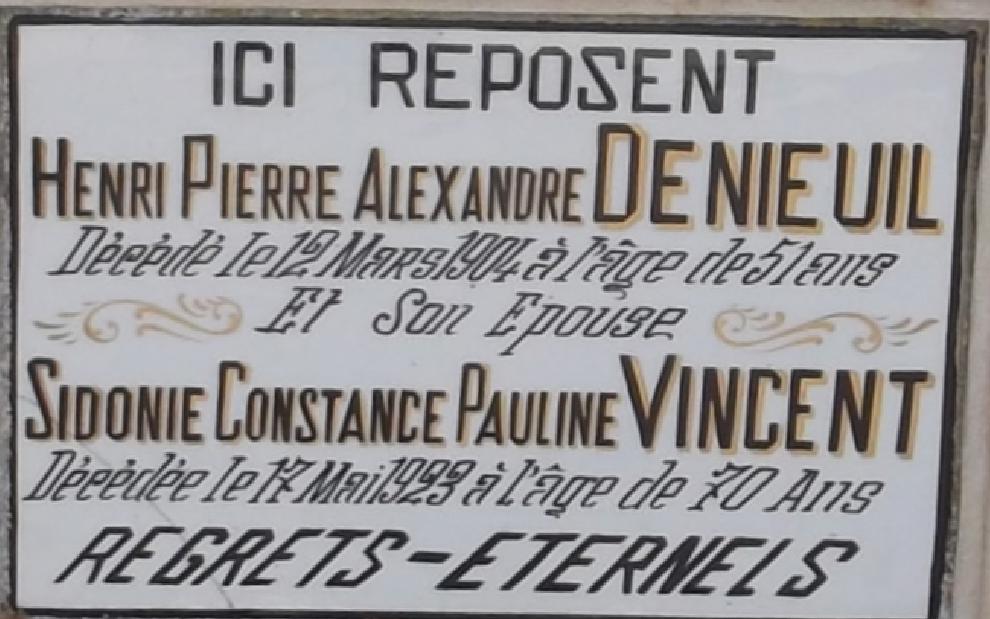 ICI REPOSENT
HENRI PIERRE ALEXANDRE DENIEUIL
Décédé le 12 Mars 1904 à l'âge de 51 ans
Et Son Epouse
SIDONIE CONSTANCE PAULINE VINCENT
Décédée le 17 Mai 1923 à l'âge de 70 Ans
REGRETS-ETERNELS